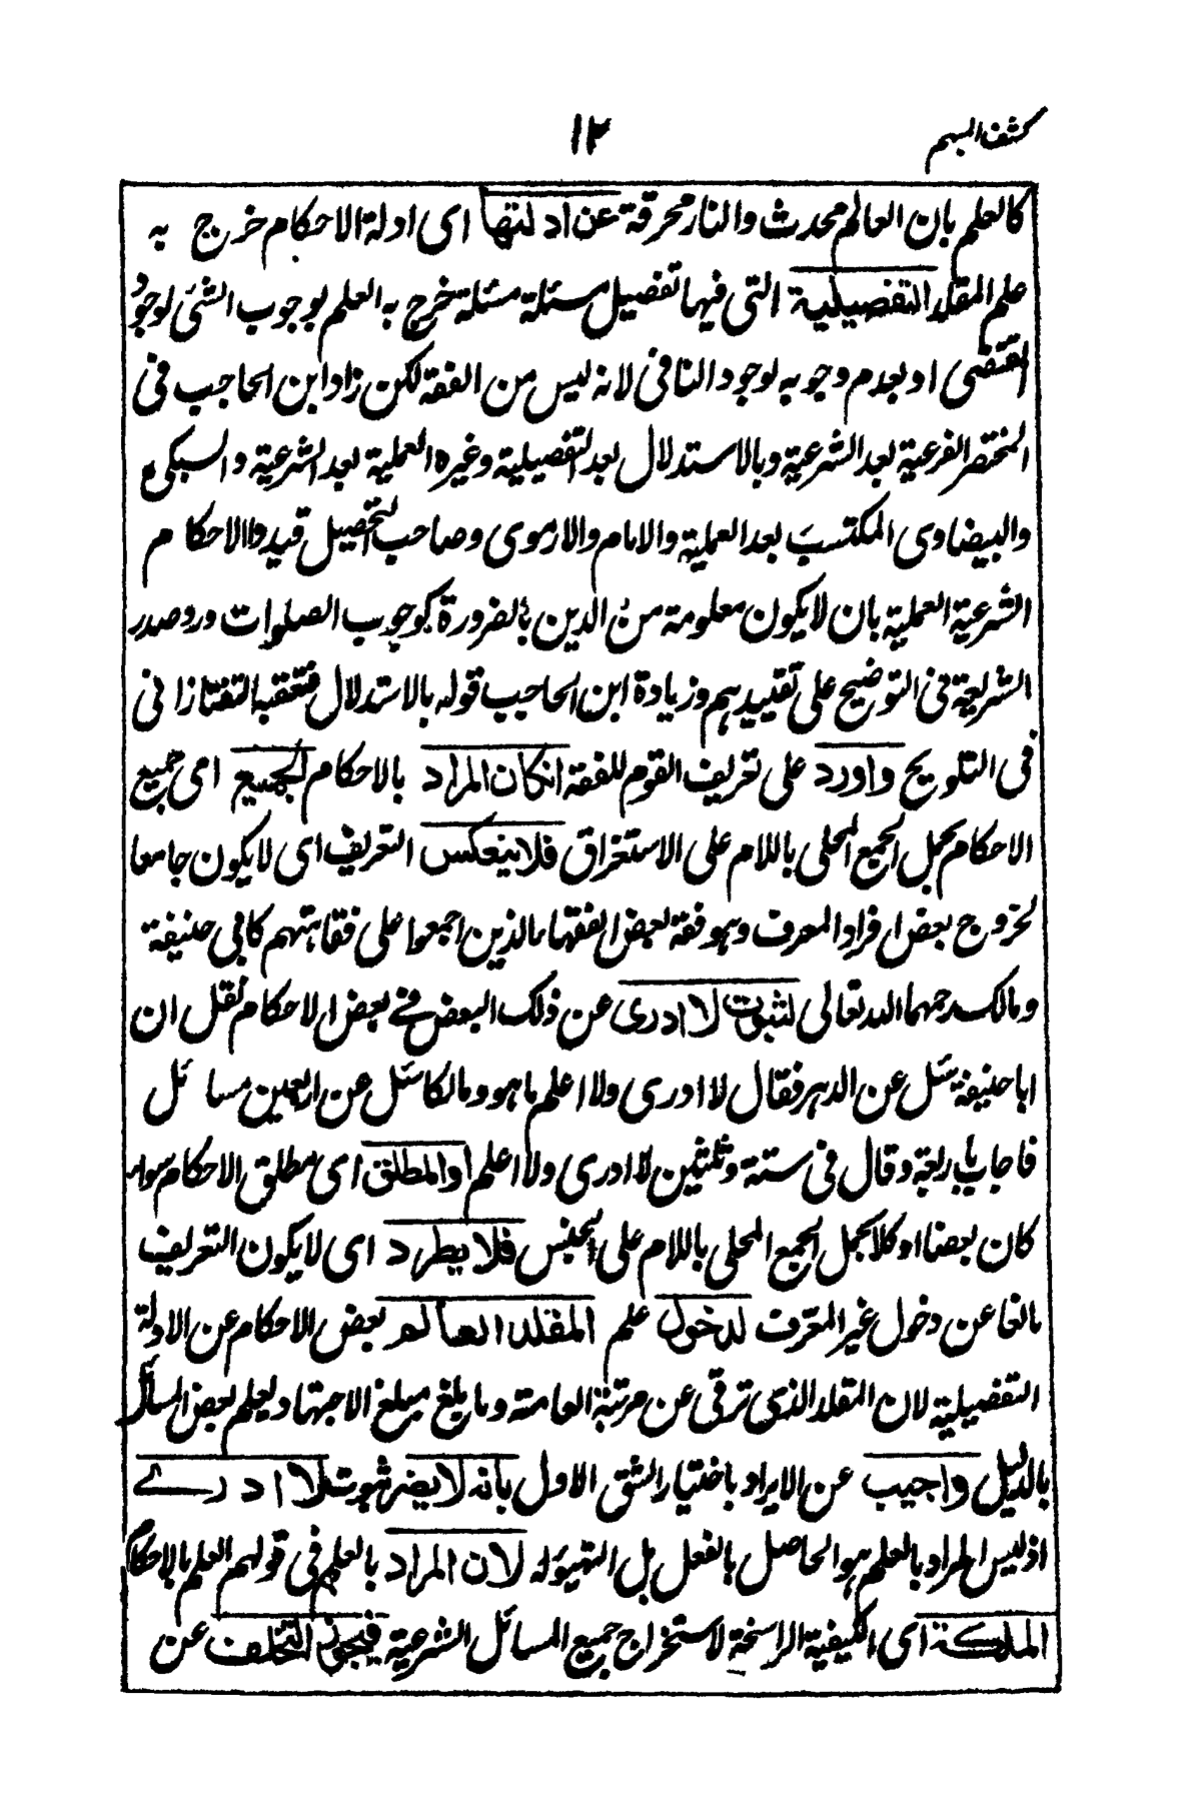 كشف المبهم
١٢
كالعلم بان العالم محدث والنار محرقة عن ادلتها اى ادلة الاحكام خرج به
علم المقلد التفصيلية التى فيها تفصيل مسئلة مسئلة خرج به العلم بوجوب الشئ لوجود
المقتضى او بعدم وجوبه لوجود النافى لانه ليس من الفقه لكن زاد ابن الحاجب فى
المختصر الفرعية بعد الشرعية وبالاستدلال بعد التفصيلية وغيره العملية بعد الشرعية والسبكى
والبيضاوى المكتسب بعد العملية والامام والارموى وصاحب التحصيل قيدوا الاحكام
الشرعية العملية بان لا يكون معلومة من الدين بالضرورة كوجوب الصلوات ورد صدر
الشريعة فى التوضيح على تقييدهم وزيادة ابن الحاجب قوله بالاستدلال فتعقبه التفتازانى
فى التلويح واورد على تعريف القوم للفقه انكان المراد بالاحكام الجميع اى جميع
الاحكام بحمل الجمع المحلى باللام على الاستغراق فلا ينعكس التعريف اى لا يكون جامعا
لخروج بعض افراد المعرف وهو فقه بعض الفقهاء الذين اجمعوا على فقاهتهم كابى حنيفة
ومالك رحمهما الله تعالى لثبوت لا ادرى عن ذلك البعض فى بعض الاحكام نقل ان
ابا حنيفة سئل عن الدهر فقال لا ادرى ولا اعلم ما هو ومالكا سئل عن اربعين مسائل
فاجاب باربعة وقال فى ستة وثلثين لا ادرى ولا اعلم او المطلق اى مطلق الاحكام سواء
كان بعضا او كلا بحمل الجمع المحلى باللام على الجنس فلا يطرد اى لا يكون التعريف
مانعا عن دخول غير المعرف لدخول علم المقلد العالم بعض الاحكام عن الادلة
التفصيلية لان المقلد الذى ترقى عن مرتبة العامة وما بلغ مبلغ الاجتهاد يعلم بعض المسائل
بالدليل واجيب عن الايراد باختيار الشق الاول بانه لا يضر ثبوت لا ادرے
اذ ليس المراد بالعلم هو الحاصل بالفعل بل التهيؤ له لان المراد بالعلم فى قولهم العلم بالاحكام
الملكة اى الكيفية الراسخة لاستخراج جميع المسائل الشرعية فيجوز التخلف عن